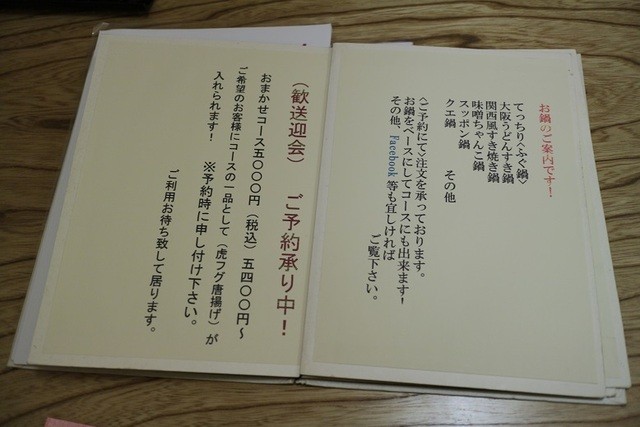 お鍋のご案内です!
てっちり〈ふぐ鍋〉
大阪うどんすき鍋
関西風すき焼き鍋
味噌ちゃんこ鍋
スッポン鍋
クエ鍋　その他
〈ご予約にて〉注文を承っております。
お鍋をベースにしてコースにも出来ます!
その他、Facebook 等も宜しければ
ご覧下さい。
(歓送迎会)　ご予約承り中!
おまかせコース五〇〇〇円(税込)五四〇〇円〜
ご希望のお客様にコースの一品として(虎フグ唐揚げ)が
入れられます!　※予約時に申し付け下さい。
ご利用お待ち致して居ります。